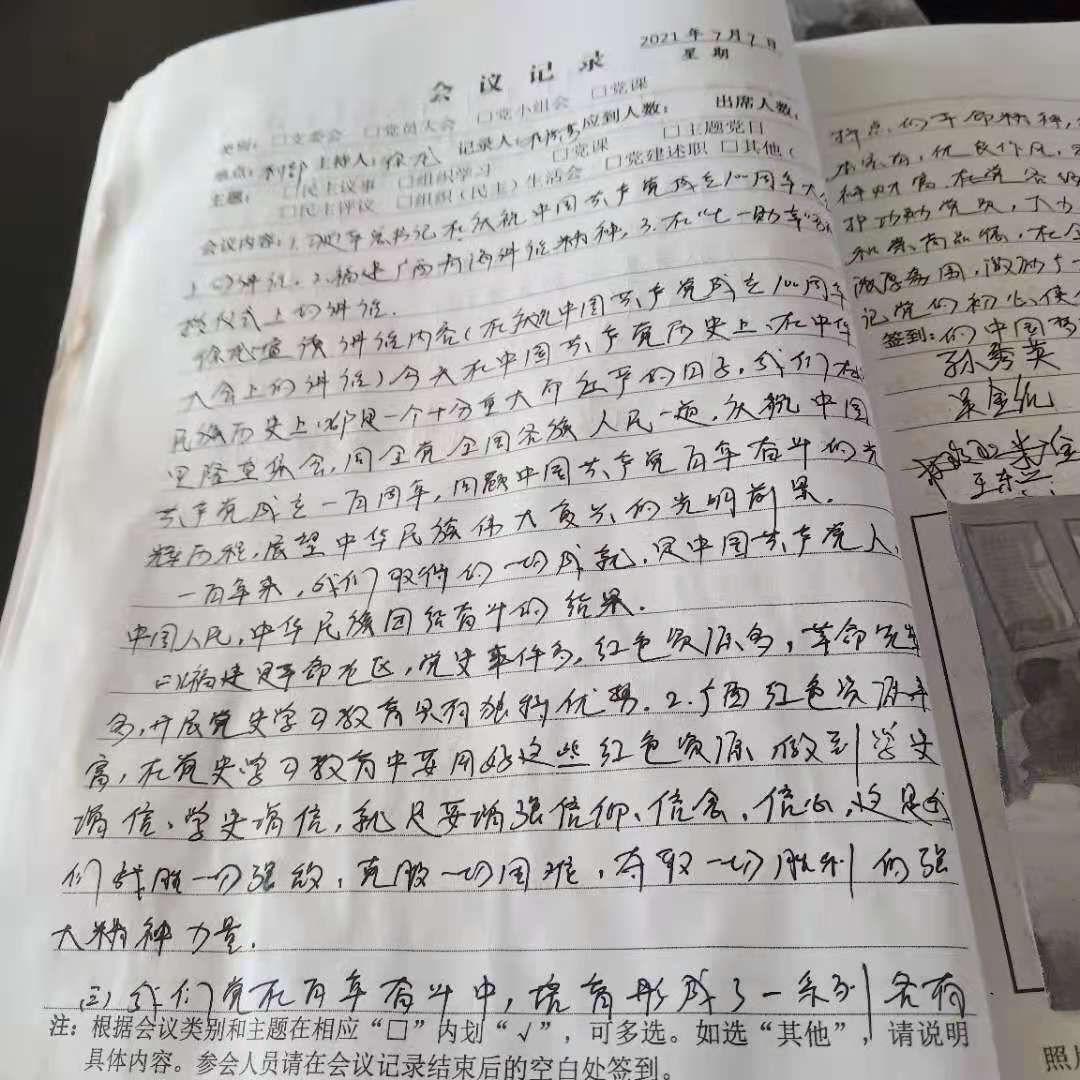 2021年7月7日
会议记录
星期
类别:□支委会 □党员大会 □党小组会 □党课
地点: 主持人: 记录人: 应到人数: 出席人数:
主题:□民主议事 □组织学习 □党课 □主题党日
□民主评议 □组织(民主)生活会 □党建述职 □其他(
会议内容:1.习近平总书记在庆祝中国共产党成立100周年大
上的讲话.2.福建广西青海讲话精神,3.在"七一勋章"
仪式上的讲话.
宣读讲话内容(在庆祝中国共产党成立100周年
大会上的讲话)今天在中国共产党历史上,在中华
民族历史上,都是一个十分重大而庄严的日子.我们在
里隆重集会,同全党全国各族人民一道,庆祝中国
共产党成立一百周年,回顾中国共产党百年奋斗的光
辉历程,展望中华民族伟大复兴的光明前景.
一百年来,我们取得的一切成就,是中国共产党人,
中国人民,中华民族团结奋斗的结果.
福建是革命老区,党史事件多,红色资源多,革命先辈
多,开展党史学习教育具有独特优势.2.广西红色资源丰
富,在党史学习教育中要用好这些红色资源,做到学史
增信、学史增信,就是要增强信仰、信念、信心,这是我
们战胜一切强敌,克服一切困难,夺取一切胜利的强
大精神力量.
(三)我们党在百年奋斗中,培育形成了一系列各有
注:根据会议类别和主题在相应“□”内划“√”,可多选。如选“其他”,请说明
具体内容。参会人员请在会议记录结束后的空白处签到。
特点,的革命精神,
优良作风,
护功勋党员,大力
浓厚氛围,激励
记党的初心使
签到:的中国梦
孙秀英
照